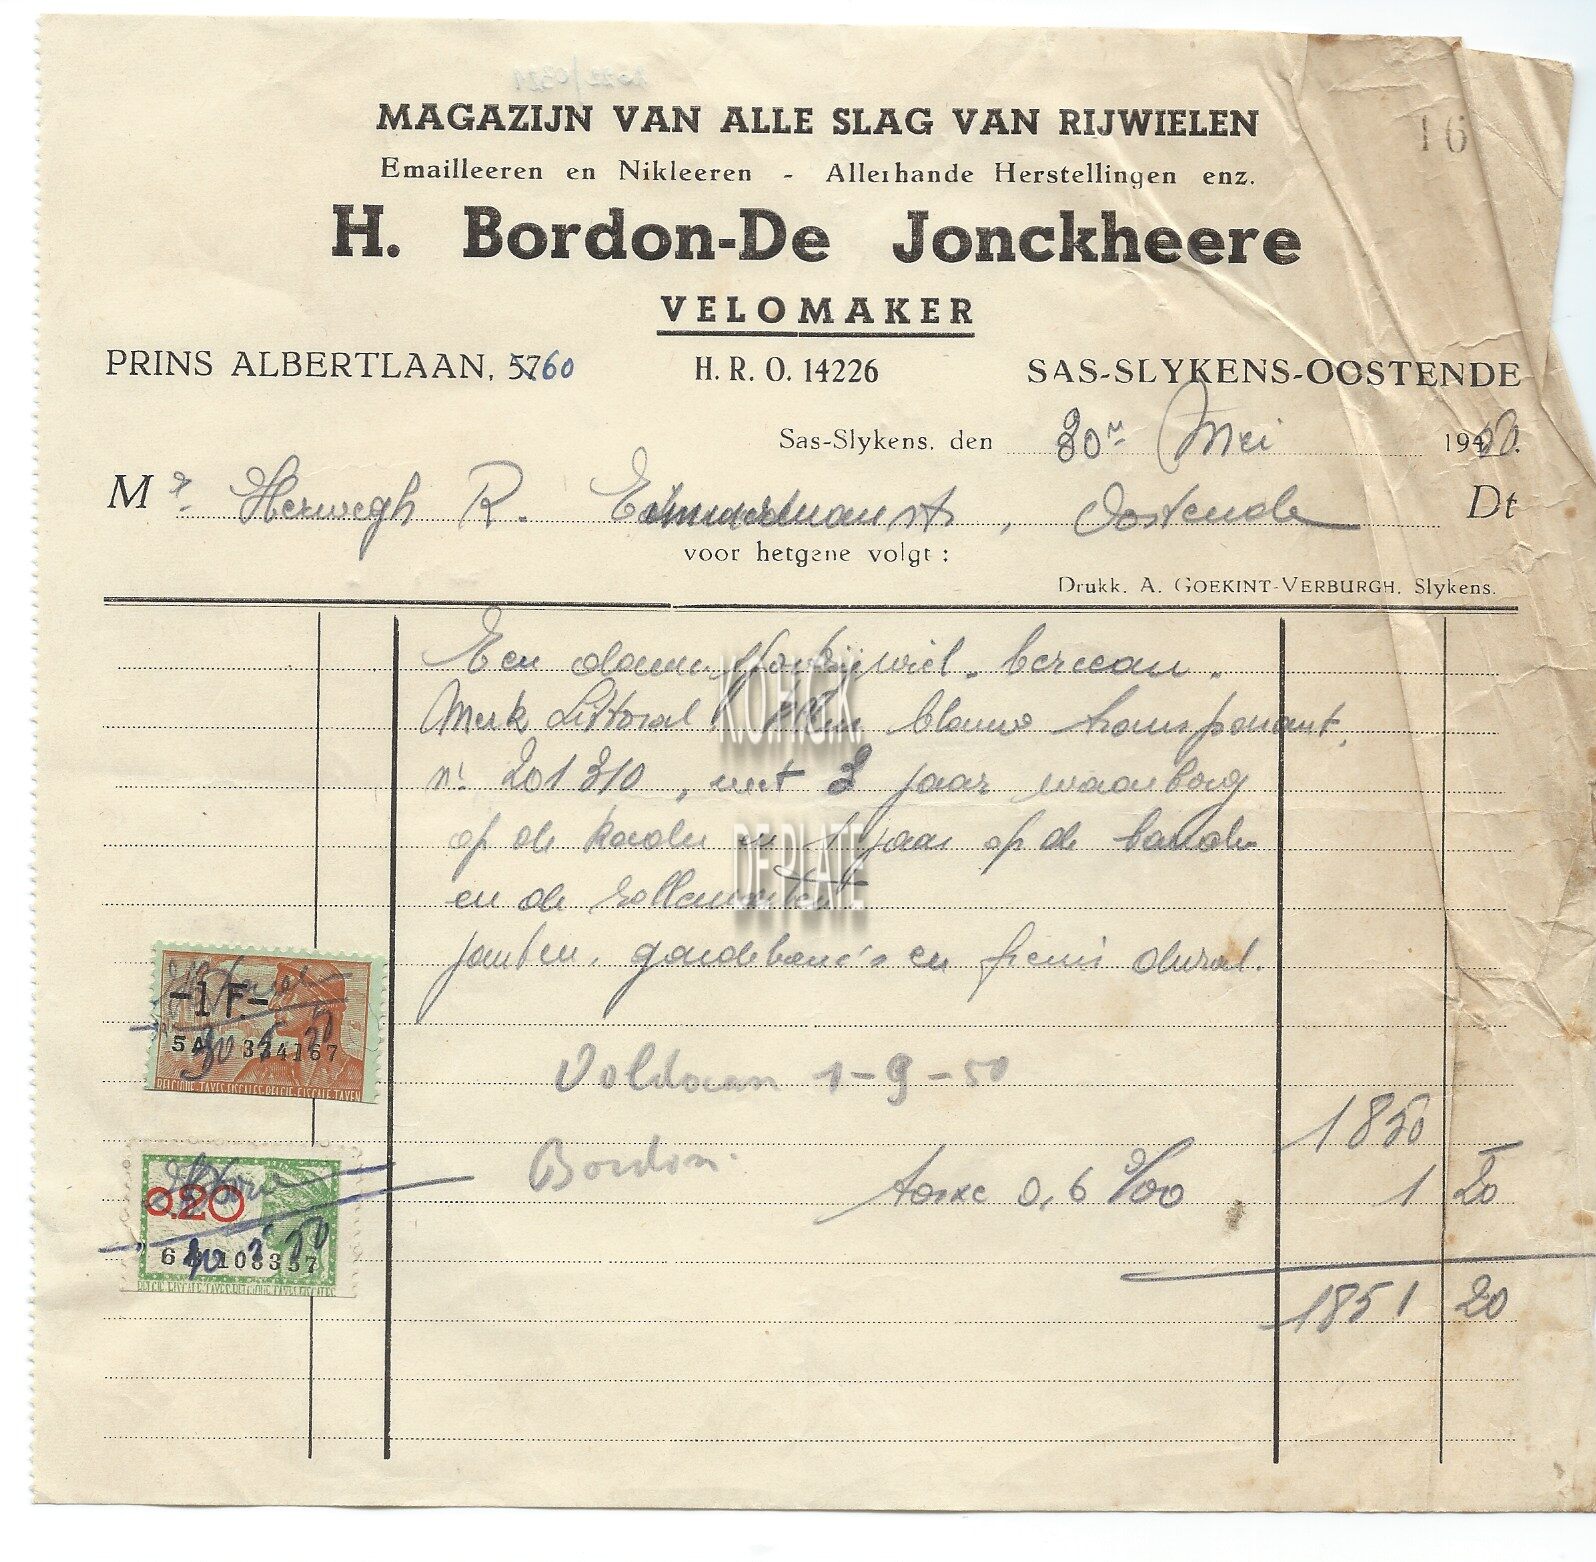 MAGAZIJN VAN ALLE SLAG VAN RIJWIELEN
16
Emailleeren en Nikleeren - Allerhande Herstellingen enz.
H. Bordon-De Jonckheere
VELOMAKER
PRINS ALBERTLAAN, 5760 H. R. O. 14226 SAS-SLYKENS-OOSTENDE
Sas-Slykens, den 30n Mei 1950.
Mr. Herwegh R. , Oostende Dt
voor hetgene volgt :
Drukk. A. GOEKINT-VERBURGH, Slykens.
Een rijwiel. berceau.
Merk Littoral blauw transparant.
nr 201310, met 3 jaar waarborg
op de kader en 1 jaar op de banden
en de
janten, gardeboue's en freins dural.
Voldaan 1-9-50
Bordon.
1850 -
taxe 0,6 %00 1 20
1851 20
-1 F.-
5A 334167
30 5 50
BELGIQUE.TAXES FISCALES.BELGIE.FISCALE TAXEN
0.20
108357
KON.H.G.K.
DE PLATE